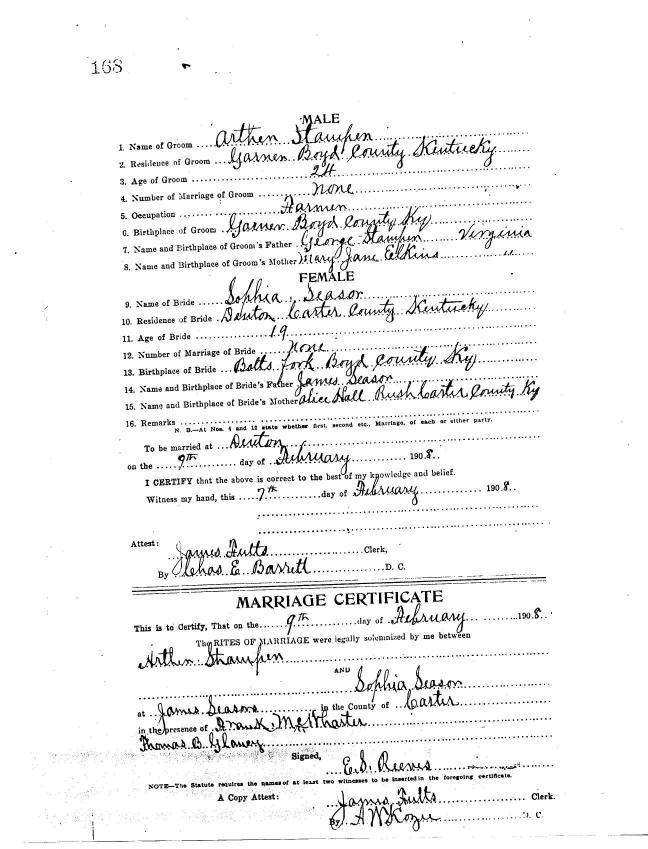 168
MALE
1. Name of Groom .... Arthen Stamper
2. Residence of Groom ... Garner Boyd County Kentucky
3. Age of Groom 24
4. Number of Marriage of Groom none
5. Occupation Farmer
6. Birthplace of Groom Garner Boyd County Ky
7. Name and Birthplace of Groom's Father George Stamper Verginia
8. Name and Birthplace of Groom's Mother Mary Jane Elkins "
FEMALE
9. Name of Bride Sophia Season
10. Residence of Bride Denton Carter County Kentucky
11. Age of Bride 19
12. Number of Marriage of Bride none
13. Birthplace of Bride Bolts Fork Boyd County Ky
14. Name and Birthplace of Bride's Father James Season
15. Name and Birthplace of Bride's Mother Alice Hall Rush Carter County Ky
16. Remarks
N. B.—At Nos. 4 and 12 state whether first, second etc., Marriage, of each or either party.
To be married at Denton
on the 9th day of February 1908
I CERTIFY that the above is correct to the best of my knowledge and belief.
Witness my hand, this 7th day of February 1908
Attest:
James Fults Clerk,
By Chas E. Barrett D. C.
MARRIAGE CERTIFICATE
This is to Certify, That on the 9th day of February 1908
The RITES OF MARRIAGE were legally solemnized by me between
Arthen Stamper
AND
Sophia Season
at James Seasons in the County of Carter
in the presence of Frank McWharter
Thomas B.
Signed,
E. S. Reeves
NOTE—The Statute requires the names of at least two witnesses to be inserted in the foregoing certificate.
A Copy Attest: James Fults Clerk.
By A W Kozee D. C.